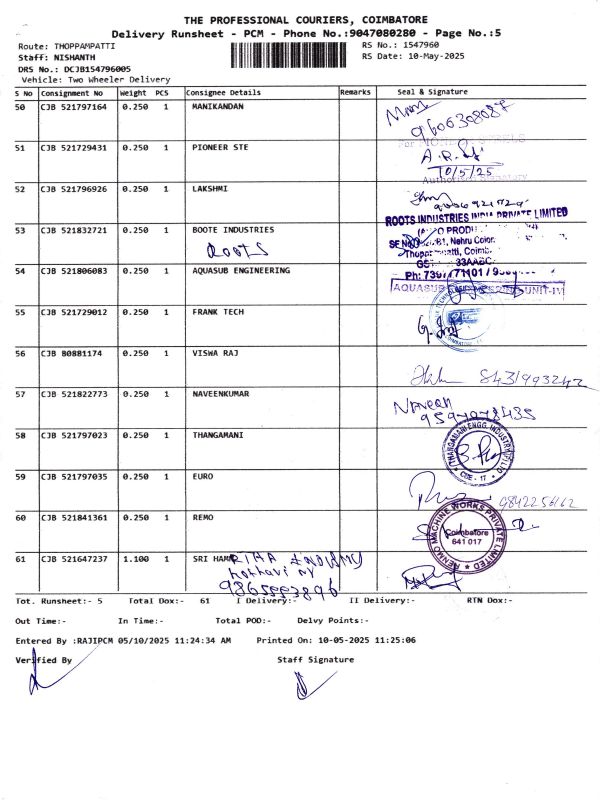 THE PROFESSIONAL COURIERS, COIMBATORE
Delivery Runsheet - PCM - Phone No.:9047080280 - Page No.:5
Route: THOPPAMPATTI RS No.: 1547960
Staff: NISHANTH RS Date: 10-May-2025
DRS No.: DCJB154796005
Vehicle: Two Wheeler Delivery
S No Consignment No Weight PCS Consignee Details Remarks Seal & Signature
50 CJB 521797164 0.250 1 MANIKANDAN
9606308087
51 CJB 521729431 0.250 1 PIONEER STE
10/5/25
Authorised Signatory
52 CJB 521796926 0.250 1 LAKSHMI
ROOTS INDUSTRIES INDIA PRIVATE LIMITED
53 CJB 521832721 0.250 1 BOOTE INDUSTRIES
ROOTS
Nehru Color
54 CJB 521806083 0.250 1 AQUASUB ENGINEERING
AQUASUB
UNIT-IV
55 CJB 521729012 0.250 1 FRANK TECH
56 CJB 80881174 0.250 1 VISWA RAJ
8431993242
57 CJB 521822773 0.250 1 NAVEENKUMAR
Naveen
58 CJB 521797023 0.250 1 THANGAMANI
THANGAMANI ENGG. INDUSTRY (P) LTD
CBE - 17
59 CJB 521797035 0.250 1 EURO
9842256162
60 CJB 521841361 0.250 1 REMO
RENMO MACHINE WORKS PRIVATE LIMITED
Coimbatore
641 017
61 CJB 521647237 1.100 1 SRI HAM
9365993896
Tot. Runsheet:- 5 Total Dox:- 61 I Delivery:- II Delivery:- RTN Dox:-
Out Time:- In Time:- Total POD:- Delvy Points:-
Entered By :RAJIPCM 05/10/2025 11:24:34 AM Printed On: 10-05-2025 11:25:06
Verified By Staff Signature